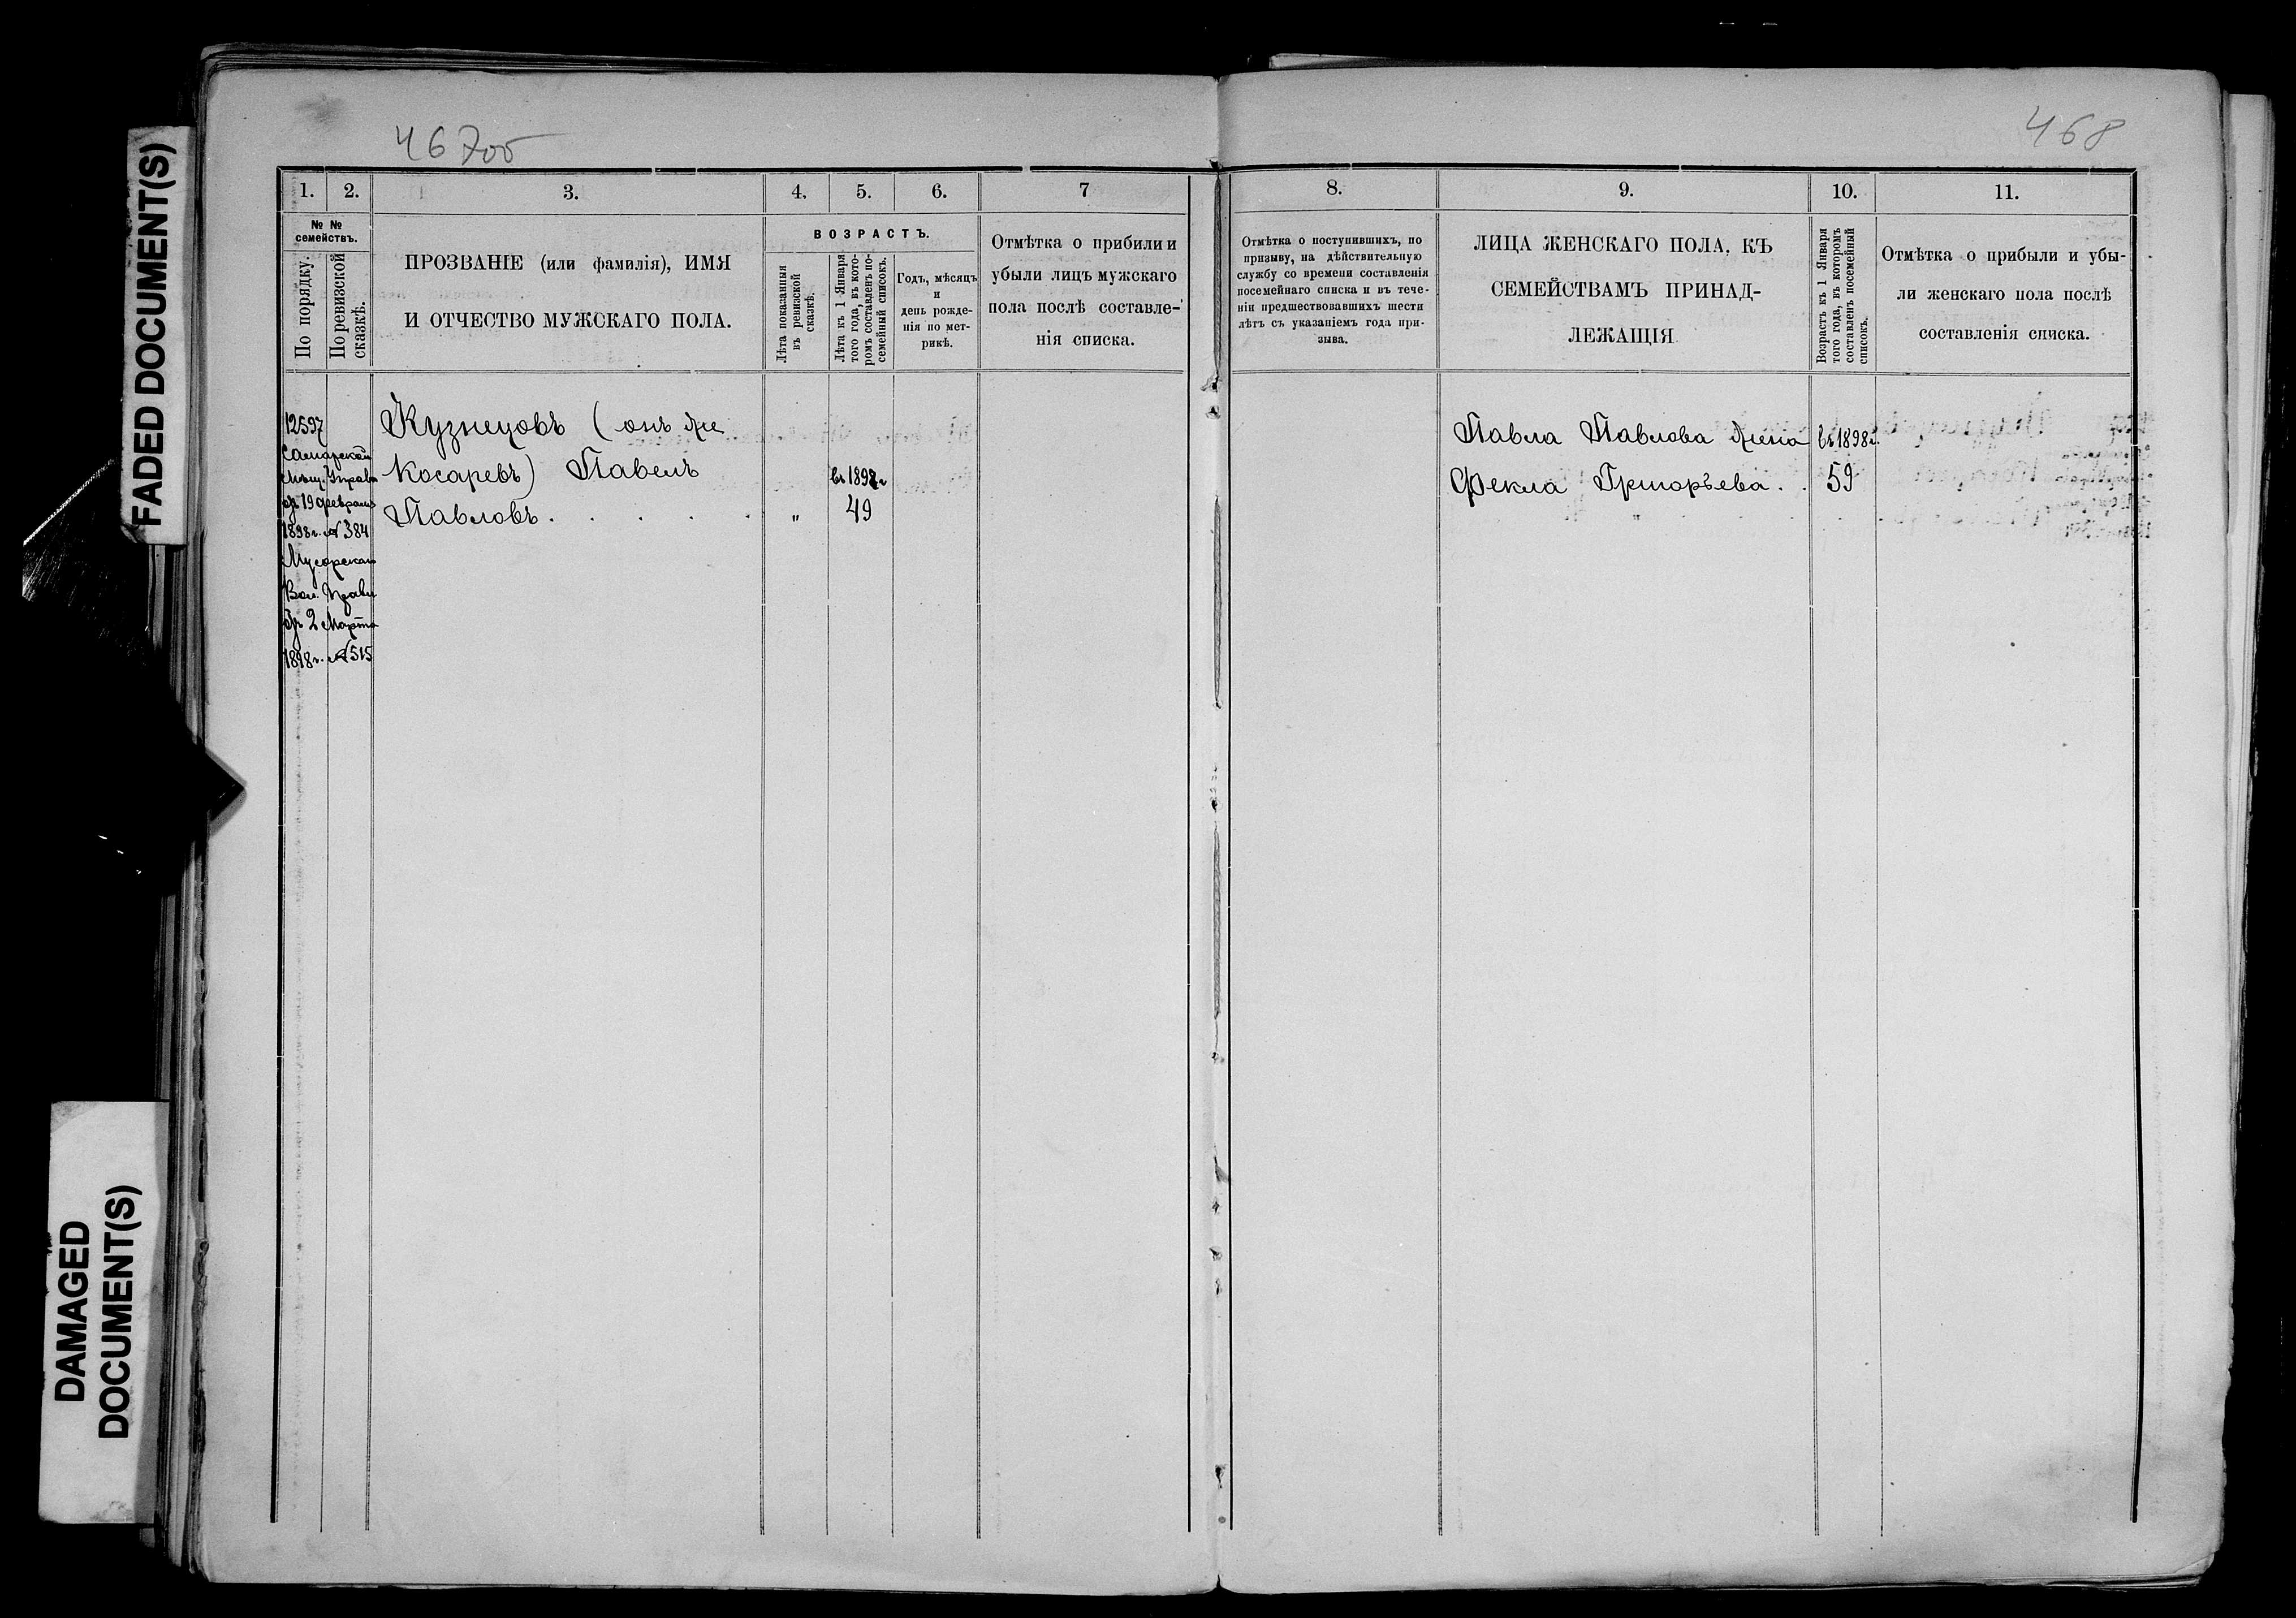 FADED DOCUMENT(S)
DAMAGED
DOCUMENT(S)
467об
1.
2.
3.
4.
5.
6.
7
№ №
семействъ.
По порядку.
По ревизской
сказкѣ.
ПРОЗВАНІЕ (или фамилія), ИМЯ
И ОТЧЕСТВО МУЖСКАГО ПОЛА.
ВОЗРАСТЪ.
Лѣта показанныя
въ ревизской
сказкѣ.
Лѣта къ 1 Января
того года, въ кото-
ромъ составленъ по-
семейный списокъ.
Годъ, мѣсяцъ
и
день рожде-
нія по мет-
рикѣ.
Отмѣтка о прибыли и
убыли лицъ мужскаго
пола послѣ составле-
нія списка.
12597
Самарской
Мѣщ. Управы
19 февраля
1898г. № 384
Мусорскаго
Вол. Правл
2 Марта
1898г. № 515
Кузнецовъ (онъ же
Косаревъ) Павелъ
Павловъ . . . . . „
въ 1898г
49
468
8.
9.
10.
11.
Отмѣтка о поступившихъ, по
призыву, на дѣйствительную
службу со времени составленія
посемейнаго списка и въ тече-
ніи предшествовавшихъ шести
лѣтъ съ указаніемъ года при-
зыва.
ЛИЦА ЖЕНСКАГО ПОЛА, КЪ
СЕМЕЙСТВАМЪ ПРИНАД-
ЛЕЖАЩІЯ
Возрастъ къ 1 Января
того года, въ которомъ
составленъ посемейный
списокъ.
Отмѣтка о прибыли и убы-
ли женскаго пола послѣ
составленія списка.
Павла Павлова жена
Фекла Григорьева . .
въ 1898г.
59